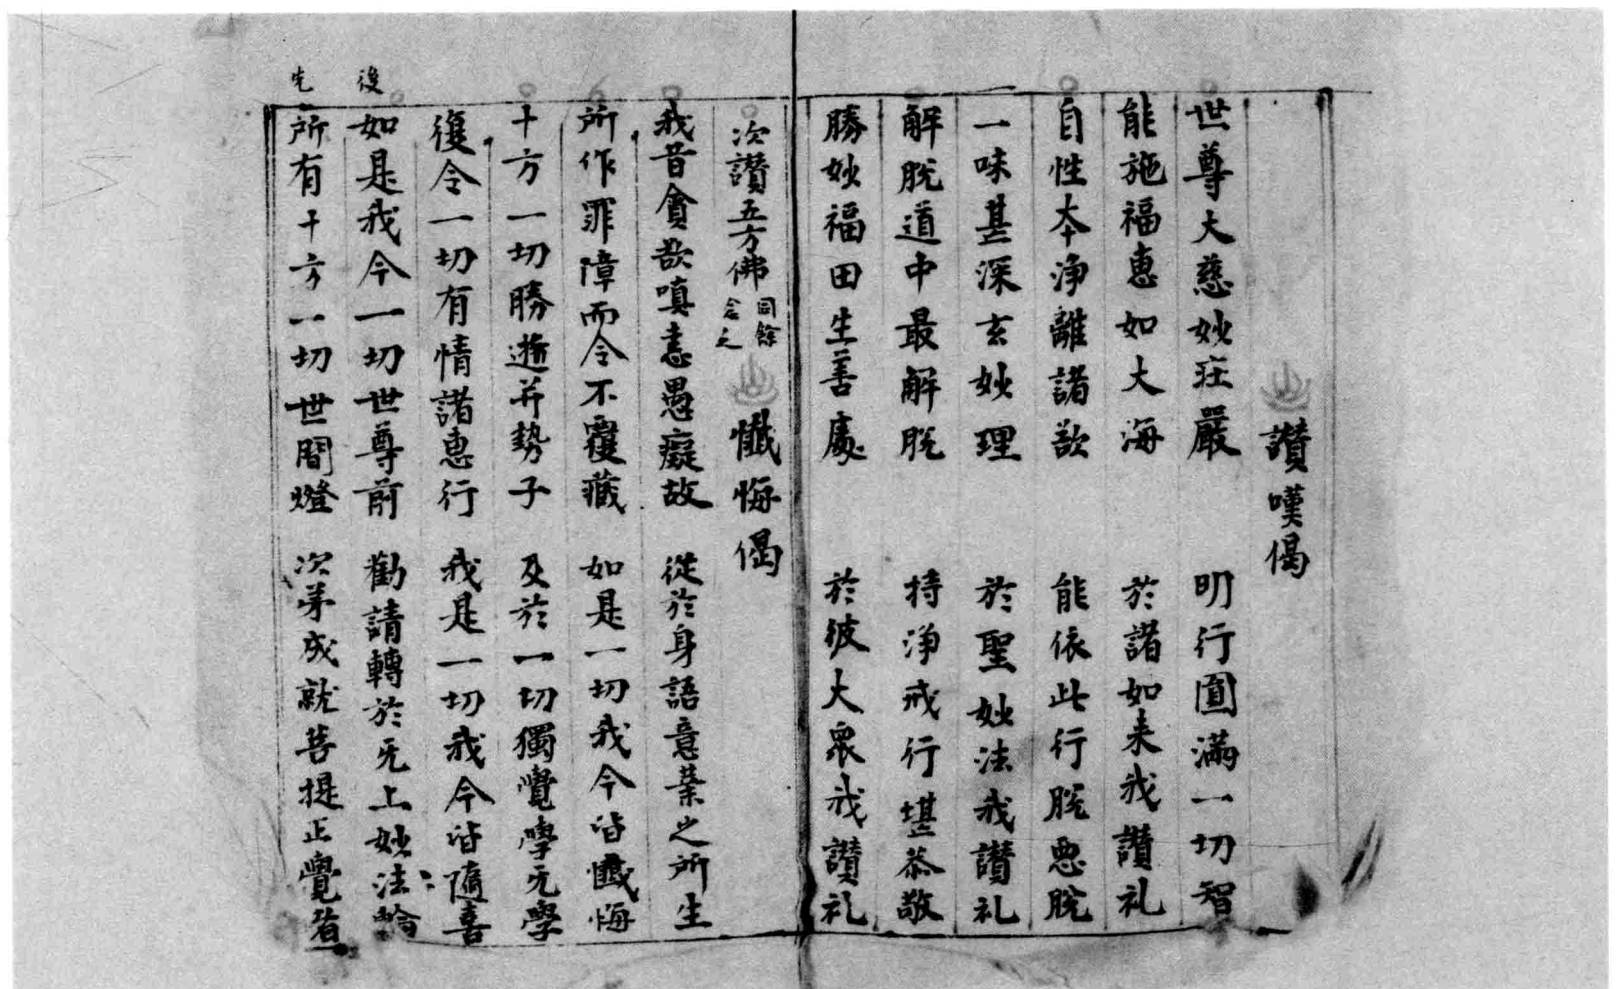 讃嘆偈
世尊大慈妙疰嚴 明行圓滿一切智
能施福惠如大海 於諸如来我讃礼
自性夲净離諸欲 能依此行脫惡脫
一味甚深玄妙理 於聖妙法我讃礼
解脫道中最解脫 持净戒行堪恭敬
勝妙福田生善處 於彼大衆我讃礼
次讃五方佛 同餘念之 懺悔偈
我昔貪欲嗔恚愚癡故 從於身語意業之所生
所作罪障而令不覆藏 如是一切我今皆懺悔
十方一切勝逝并勢子 及於一切獨覺學无學
復令一切有情諸惠行 我是一切我今皆隨喜
後 如是我今一切世尊前 勸請轉於无上妙法輪
先 所有十方一切世間燈 次第成就菩提正覺者